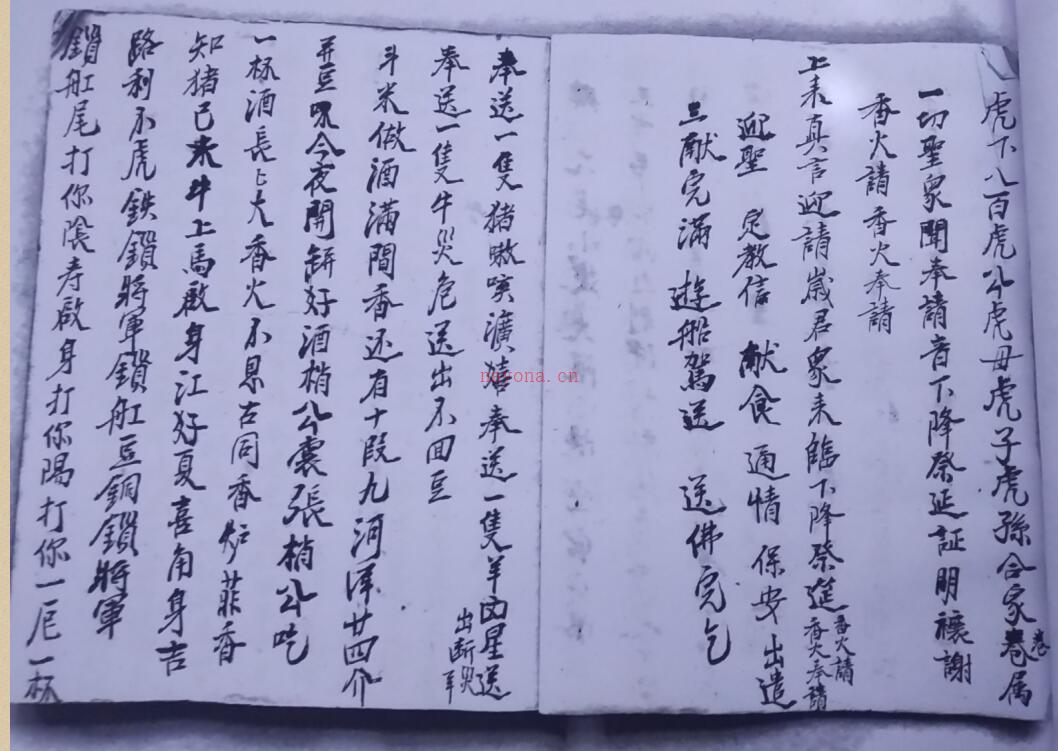 虎下八百虎公虎母虎子虎孫合家眷属
一切聖眾聞奉請音下降祭延証明禳謝
香火請香火奉請
上来真言迎請歲君眾来臨下降祭筵香火請香火奉請
迎聖 定教信 献食 通情 保安 出遣
三献完滿 遊船駕送 送佛完乞
奉送一隻猪嗷 奉送一隻羊凶星送
奉送一隻牛災危送出不回豆 出断
斗米做酒滿間香还有十段九河澤廿四介
开豆 今夜開缾好酒梢公囊張梢公吃
一杯酒長上大香火不息古同香炉菲香
知猪已未牛上馬啟身江好夏喜角身吉
路利不虎鉄鎖將軍鎖舡豆銅鎖將軍
鎖舡尾打你陰寿啟身打你陽打你一 一杯
nayona.cn